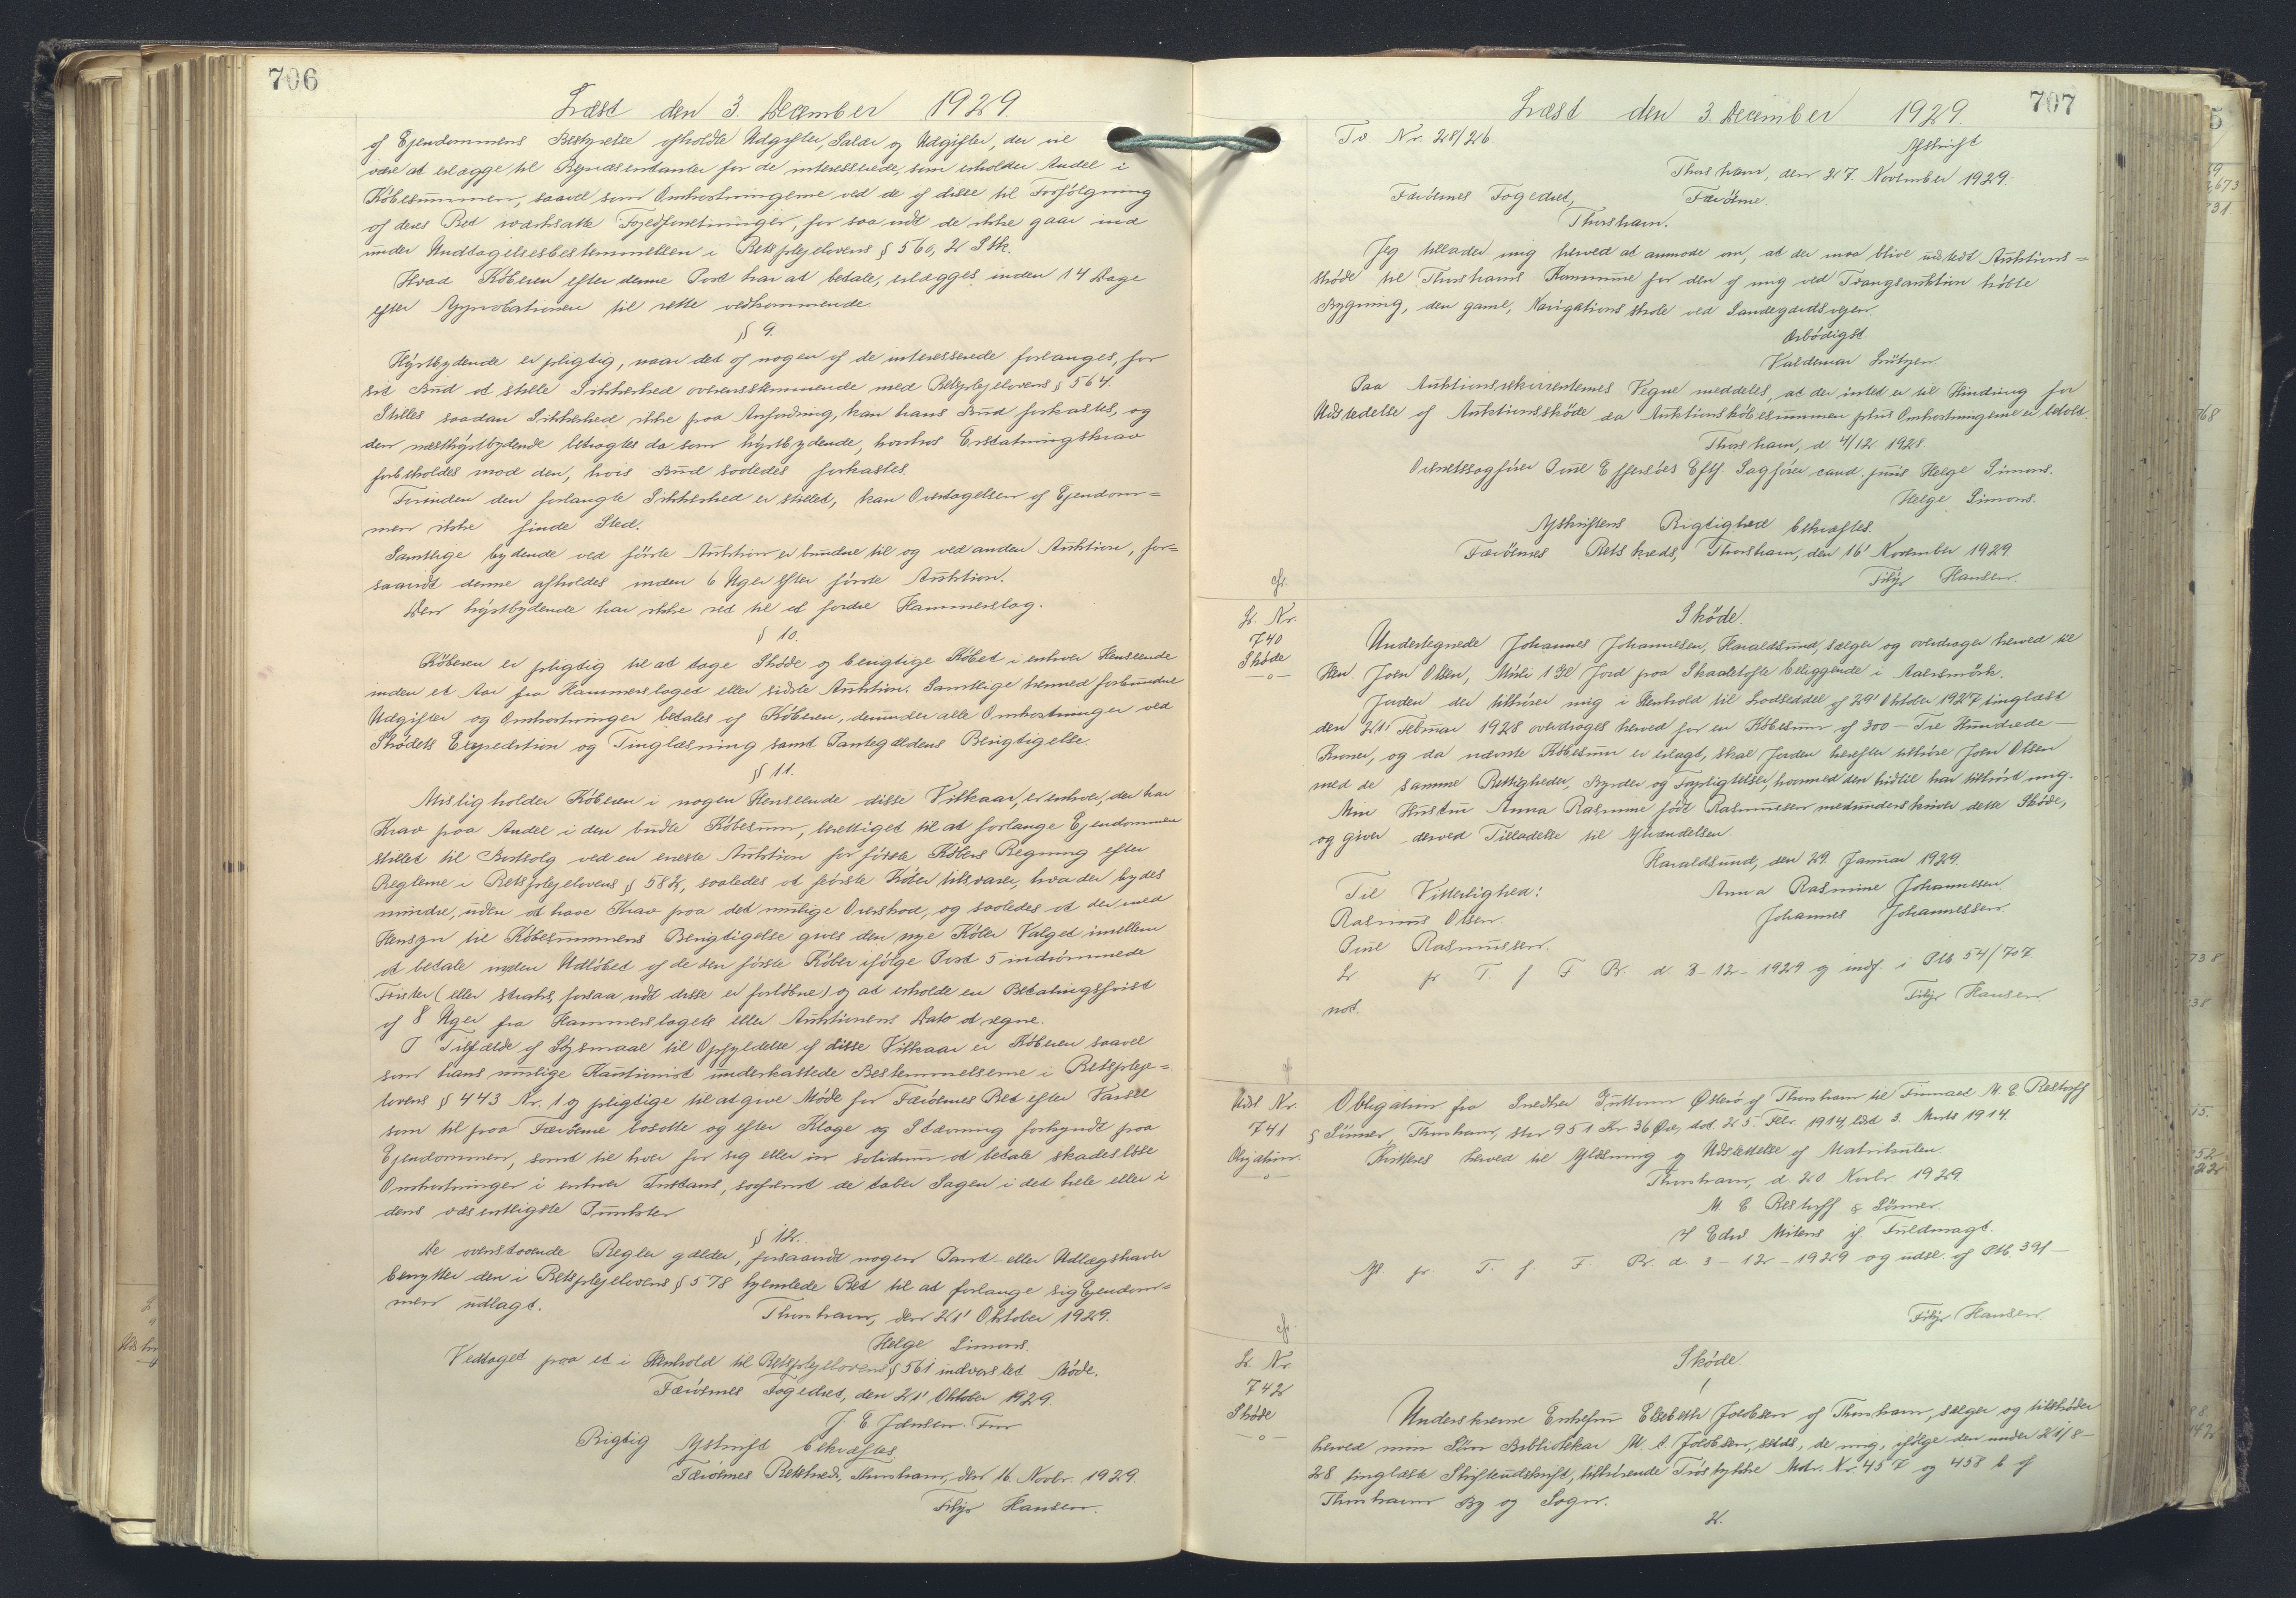 706
Læst den 3. December 1929.
af Ejendommens Bestyrelse afholdte Udgifter, Salær og Udgifter, der vil
være at erlægge til Repræsentanter for de interesserede, som erholder Andel i
Købesummen, saavel som Omkostningerne ved de af disse til Forfølgning
af deres Ret iværksatte Fogedforretninger, for saa vidt de ikke gaar ind
under Undtagelsesbestemmelsen i Retsplejelovens § 560, 2 Stk.
Hvad Køberen efter denne Post har at betale, erlægges inden 14 Dage
efter Approbationen til rette vedkommende.
§ 9.
Højstbydende er pligtig, naar det af nogen af de interesserede forlanges, for
sit Bud at stille Sikkerhed overensstemmende med Retsplejelovens § 564.
Stilles saadan Sikkerhed ikke paa Anfordring, kan hans Bud forkastes, og
den næsthøjstbydende betragtes da som højstbydende, hvorhos Erstatningskrav
forbeholdes mod den, hvis Bud saaledes forkastes.
Forinden den forlangte Sikkerhed er stillet, kan Overtagelsen af Ejendom=
men ikke finde Sted.
Samtlige bydende ved første Auktion er bundne til og ved anden Auktion, for=
saavidt denne afholdes inden 6 Uger efter første Auktion.
Den højstbydende har ikke ret til et fordre Hammerslag.
§ 10.
Køberen er pligtig til at tage Skøde og berigtige Købet i enhver Henseende
inden et Aar fra Hammerslaget eller sidste Auktion. Samtlige hermed forbundne
Udgifter og Omkostninger betales af Køberen, derunder alle Omkostninger ved
Skødets Expedition og Tinglæsning samt Pantegældens Berigtigelse.
§ 11.
Misligholder Køberen i nogen Henseende disse Vilkaar, er enhver, der har
Krav paa Andel i den budte Købesum, berettiget til at forlange Ejendommen
stillet til Bortsalg ved en eneste Auktion for første Købers Regning efter
Reglerne i Retsplejelovens § 582, saaledes at første Køber tilsvarer, hvad der bydes
mindre, uden at have Krav paa det mulige Overskud, og saaledes at der med
Hensyn til Købesummens Berigtigelse gives den nye Køber Valget imellem
at betale inden Udløbet af de den første Køber ifølge Post 5 indrømmede
Frister (eller straks, forsaa vidt disse er forløbne) og at erholde en Betalingsfrist
af 8 Uger fra Hammerslagets eller Auktionens Dato at regne.
I Tilfælde af Søgsmaal til Opfyldelse af disse Vilkaar er Køberen saavel
som hans mulige Kautionist underkastede Bestemmelserne i Retspleje=
lovens § 443 Nr. 1 og pligtige til at give Møde for Færøernes Ret efter Varsel
som til paa Færøerne bosatte og efter Klage og Stævning forkyndt paa
Ejendommen, samt til hver for sig eller in solidum at betale skadesløse
Omkostninger i enhver Instans, saafremt de taber Sagen i det hele eller i
dens væsentligste Punkter
§ 12.
De ovenstaaende Regler gælder, forsaavidt nogen Pant- eller Udlægshaver
benytter den i Retsplejelovens § 578 hjemlede Ret til at forlange sig Ejendom=
men udlagt.
Thorshavn, den 21' Oktober 1929.
Helge Simons.
Vedtaget paa et i Henhold til Retsplejelovens § 561 indvarslet Møde.
Færøernes Fogedret, den 21' Oktober 1929.
Rigtig Afskrift bekræftes
Færøernes Retskreds, Thorshavn, den 16. Novbr. 1929.
Filip Hansen.
707
Læst den 3. December 1929.
Tv Nr. 28/26
Afskrift
Thorshavn, den 27. November 1929.
Færøernes Fogedret, Færøerne.
Thorshavn.
Jeg tillader mig herved at anmode om, at der maa blive udstedt Auktions=
skøde til Thorshavns Kommune for den af mig ved Tvangsauktion købte
Bygning, den gamle Navigationsskole ved Sandegærdsvejen.
Ærbødigst
Valdemar Lützen
Paa Auktionsrekvirenternes Vegne meddeles, at der intet er til Hinding for
Udstedelse af Auktionsskøde da Auktionskøbesummen plus Omkostningerne er betalt.
Thorshavn, d. 4/12 1928.
Overretssagfører Poul Effersøes Eftf. Sagfører cand. juris Helge Simons.
Helge Simons.
Afskriftens Rigtighed bekræftes.
Færøernes Retskreds, Thorshavn, den 16' November 1929
Filip Hansen.
cfr.
L. Nr.
740
Skøde
Skøde.
Undertegnede Johannes Johannesen, Haraldsund, sælger og overdrager herved til
Hrr. Joen Olsen, Mikli 1 Gl Jord paa Skaaletofte beliggende i
Jorden der tilhører mig i Henhold til Lodseddel af 29' Oktober 1927 tinglæst
den 21' Februar 1928 overdrages herved for en Købesum af 300 - Tre Hundrede -
Kroner, og da nævnte Købesum er erlagt, skal Jorden herefter tilhøre Joen Olsen
med de samme Rettigheder, Byrder og Forpligtelser, hvormed den hidtil har tilhørt mig.
Min Hustru Anna Rasmine født Rasmussen medunderskriver dette Skøde,
og giver derved Tilladelse til Afhændelsen.
Haraldsund, den 29. Januar 1929.
Til Vitterlighed: Anna Rasmine Johannesen
Rasmus Olsen. Johannes Johannessen.
Poul Rasmussen.
L. pr T. f F R. d. 3-12-1929 og indf. i Ptb 54/707
not. Filip Hansen
cf
Udsl Nr.
741
Obligation.
Obligation fra Snedker Guttorm Østerø af Thorshavn til Firmaet M. C. Restorff
& Sønner, Thorshavn, stor 951 Kr 36 Øre, dat. 25 Febr. 1914, læst 3. Marts 1914
Kvitteres herved til Aflæsning og Udslettelse af Matrikulen.
Thorshavn, d. 20. Novbr. 1929.
M. C. Restorff & Sønner.
Edw Mitens if Fuldmagt
Afl. pr T. f. F R. d. 3-12-1929 og udsl. af Ptb. 39/-
Filip Hansen
cfr.
L. Nr.
742
Skøde
Skøde.
1
Underskrevne Enkefru Elsebeth Jacobsen af Thorshavn, sælger og tilskøder
herved min Søn Bibliotekar M. A. Jacobsen, sstds, de mig, ifølge den under 21/8-
28 tinglæste Skifteudskrift, tilhørende Træstykker Matr. Nr. 457 og 458 b af
Thorshavns By og Sogn.
2.